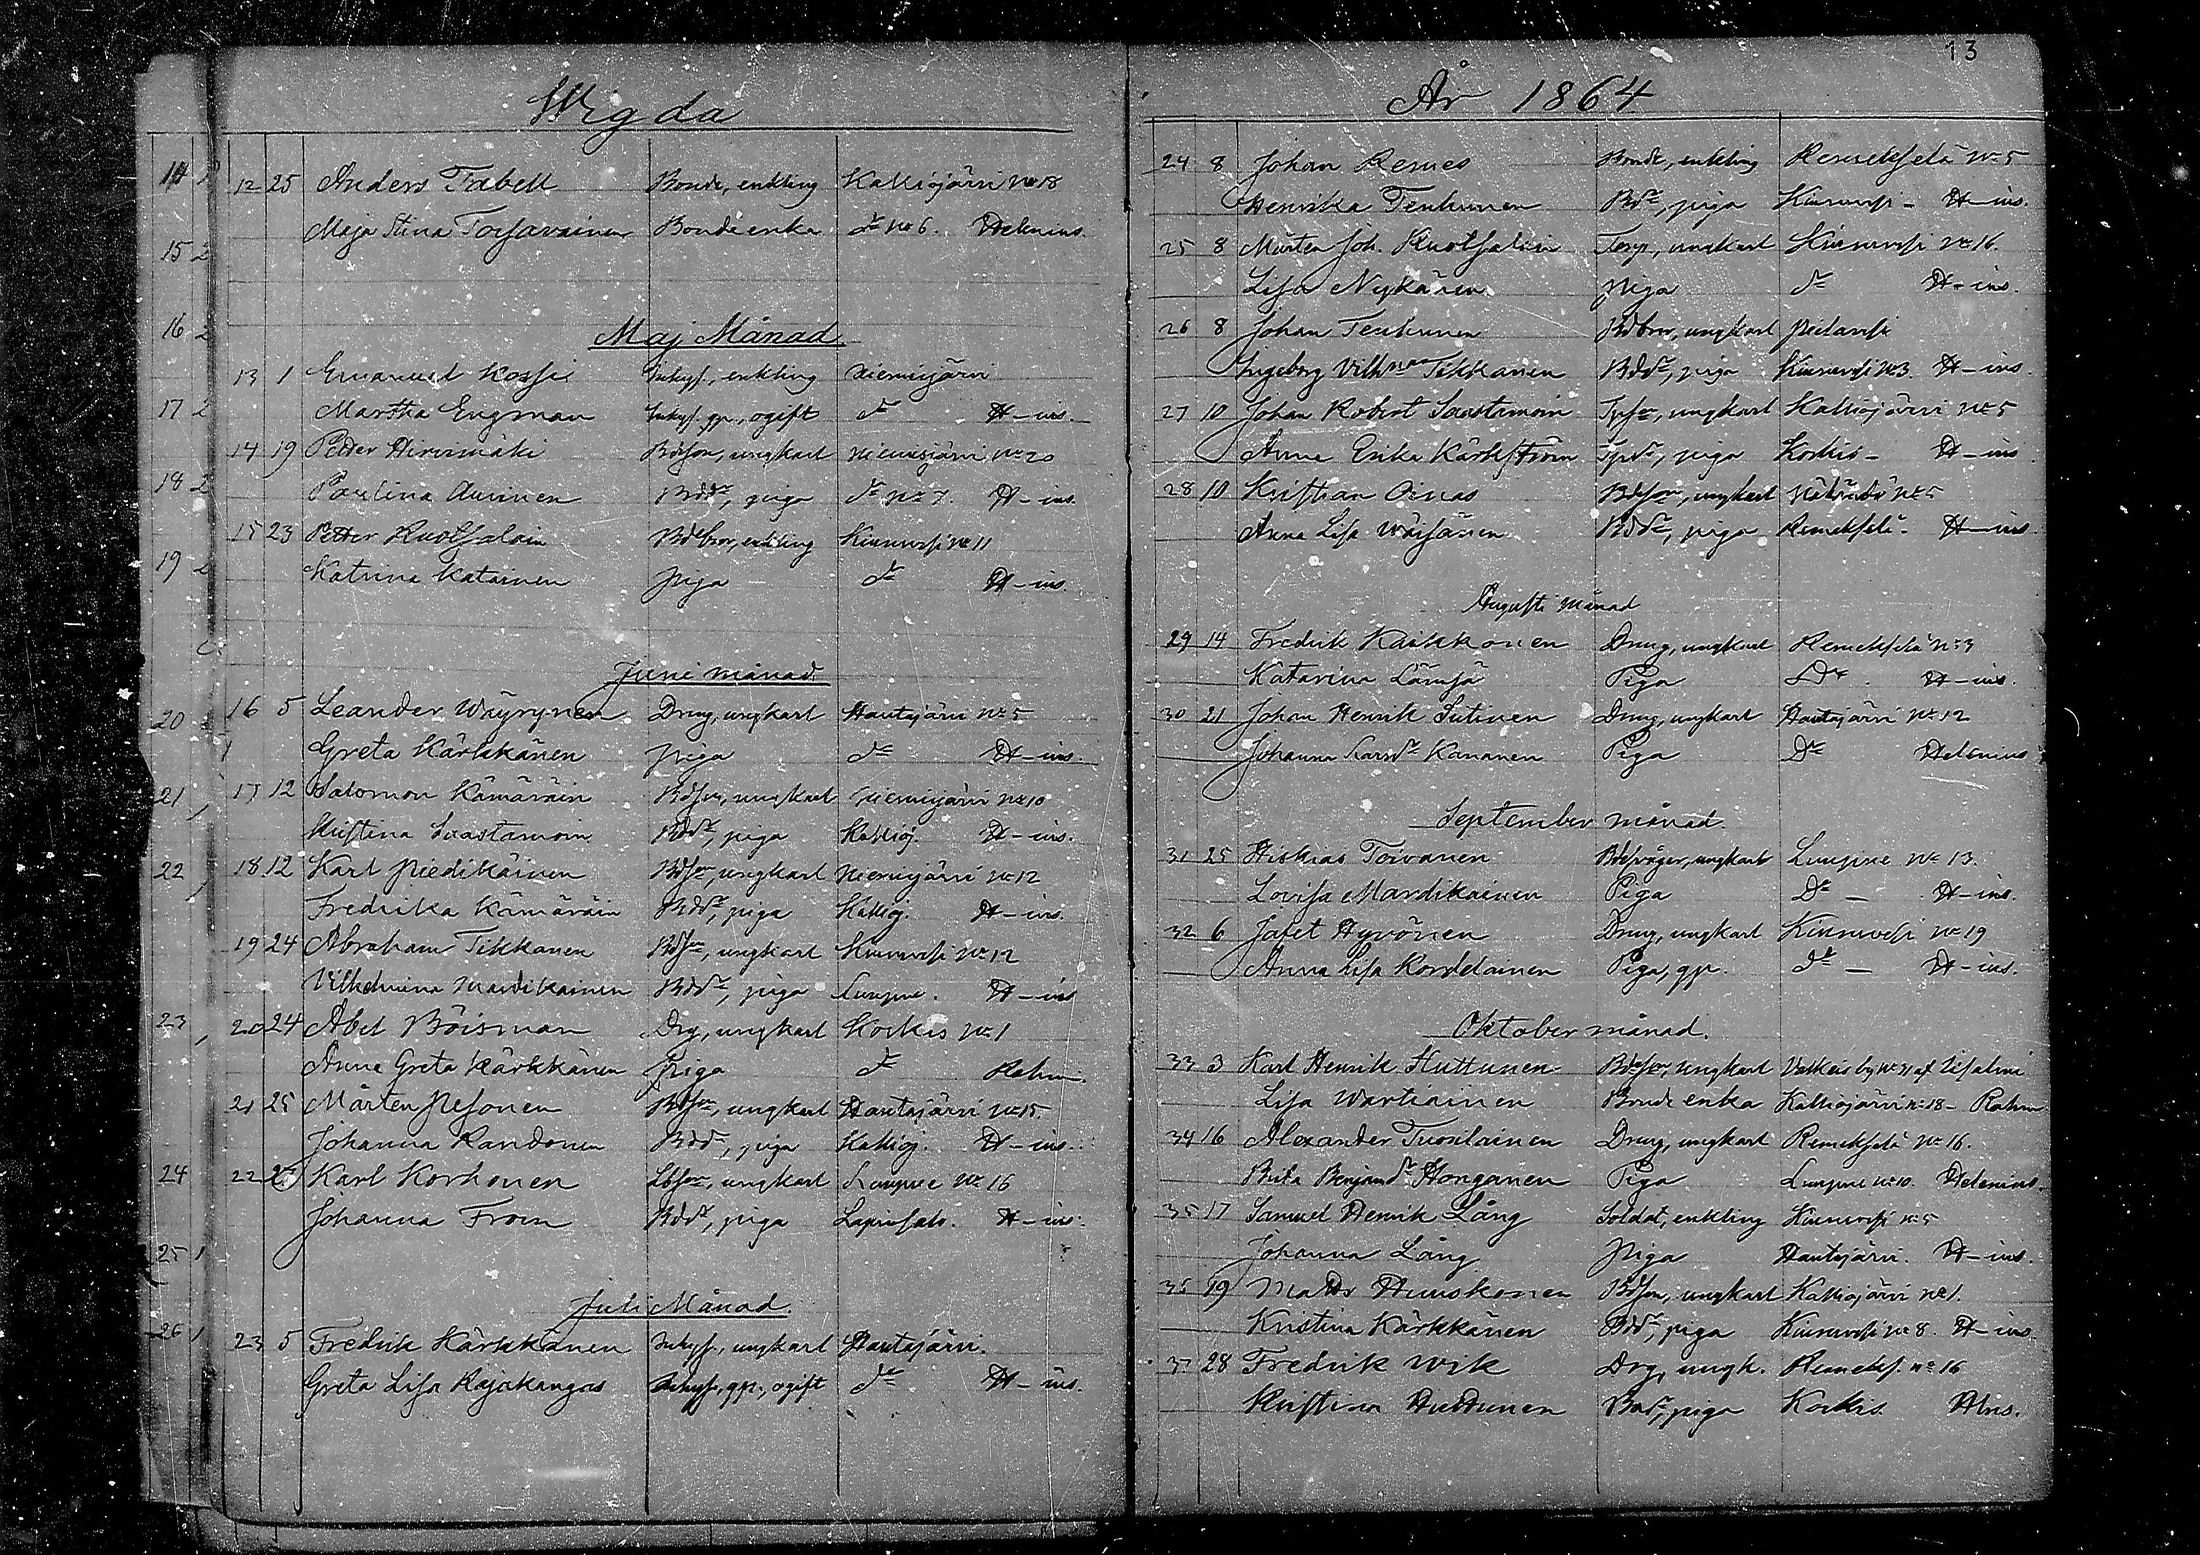 13
Wigda
År 1864
12 25 Anders Tabell Bonde, enkling Kalliojärvi No 18
Maja Stina Torsavainen Bonde enka do No 6. Helenius.
Maj Månad
13 1 Emanuel Kossi Inhys., enkling Niemisjärvi
Martha Engman Inhys. qp., ogift do H-ius.
14 19 Petter Hirvimäki Bdeson, ungkarl Niemisjärvi No 20
Paulina Auvinen Bddr, piga do No 7. H-ius.
15 23 Petter Ruotsalain Bdebror, enkling Kinnurssi No 11
Katrina Katainen piga do H-ius.
Juni månad
16 5 Leander Wäyrynen Dreng, ungkarl Hautajärvi No 5
Greta Kärkkänen piga do H-ius.
17 12 Salomon Kämäräin Bdson, ungkarl Niemisjärvi No 10
Kristina Saastamoin Bddr, piga Kalliöj. H-ius.
18 12 Karl Piedikäinen Bdson, ungkarl Niemisjärvi No 12
Fredrika Kämäräin Bddr, piga Kalliöj. H-ius.
19 24 Abraham Tikkanen Bdson, ungkarl Kinnurssi No 12
Vilhelmina Mardikainen Bddr, piga Lempne. H-ius
20 24 Abel Böisman Drg, ungkarl Korkis No 1
Anna Greta Kärkkänen piga do Rahm.
21 25 Mårten Pesonen Bdson, ungkarl Hautajärvi No 15
Johanna Randonen Bddr, piga Kalliöj. H-ius.
22 25 Karl Korhonen Lbson, ungkarl Lempne No 16
Johanna From Bddr, piga Lapinsalo. H-ius.
Juli Månad
23 5 Fredrik Kärkkänen Inhys., ungkarl Hautajärvi.
Greta Lisa Rajakangas Inhys., qp., ogift do H-ius.
24 8 Johan Remes Bonde, enkling Remekselä No 5
Henrika Tenhunen Bddr, piga Kinnurssi - H-ius.
25 8 Mårten Joh. Ruotsalain Torp., ungkarl Kinnurssi No 16.
Lisa Nykänen piga do H-ius.
26 8 Johan Tenhunen Bdbror, ungkarl
Ingeborg Vilhna Tikkanen Bddr, piga Kinnurssi No 3. H-ius.
27 10 Johan Robert Saastamoin Tpson, ungkarl Kalliojärvi No 5
Anna Erika Kärkström Tpdr, piga Korkis - H-ius
28 10 Kristian Oinas Bdeson, ungkarl No 5
Anna Lisa Wäisänen Bddr, piga Remekselä - H-ius
Augusti månad
29 14 Fredrik Karkkonen Dreng, ungkarl Remekselä No 3
Katarina Lämsä Piga Do. H-ius.
30 21 Johan Henrik Sutinen Dreng, ungkarl Hautajärvi No 12
Johanna Larsdr Kananen Piga Do Helenius
September månad.
31 25 Hiskias Toivanen Bdesvåger, ungkarl Lempne No 13.
Lovisa Mardikainen Piga Do - H-ius.
32 6 Jafet Hyvönen Dreng, ungkarl Kinnurssi No 19
Anna Lisa Kordelainen Piga, qp. do - H-ius.
Oktober månad.
33 3 Karl Henrik Huttunen Bdeson, ungkarl Valkeis by No 21 af Idensalmi
Lisa Wartiainen Bonde enka Kalliojärvi No 18 - Rahm
34 16 Alexander Tuovilainen Dreng, ungkarl Remekselä No 16.
Brita Benjamdr Honganen Piga Lempne No 10. Helenius.
35 17 Samuel Henrik Lång Soldat, enkling Kinnurssi No 5
Johanna Lång Piga Hautajärvi. H-ius.
35 19 Matts Huuskonen Bdson, ungkarl Kalliojärvi No 1.
Kristina Kärkkänen Bddr, piga Kinnurssi No 8. H-ius.
37 28 Fredrik Wik Drg, ungk. Remeks. No 16
Kristina Huttunen Bddr, piga Korkis. Hlns.